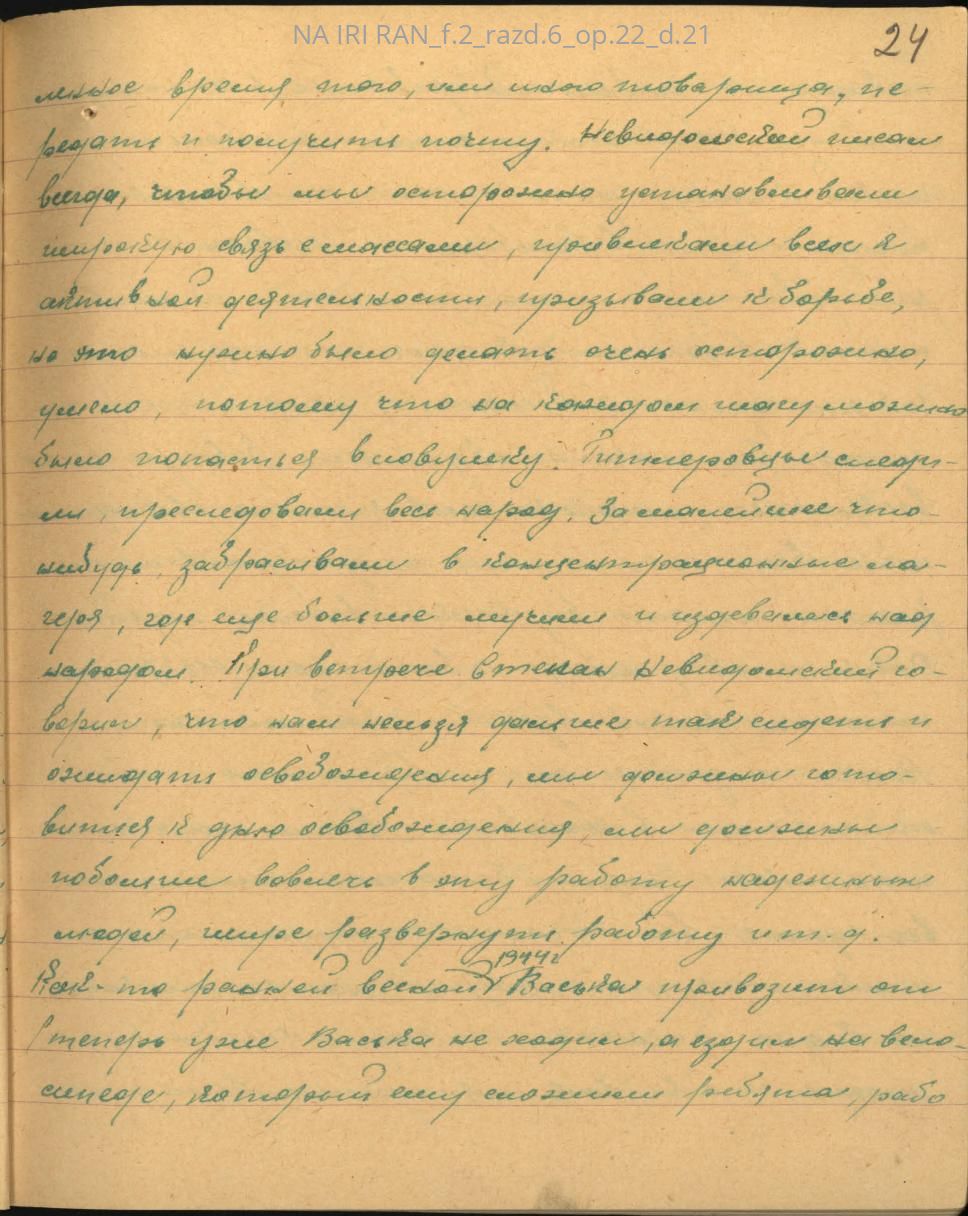 NA IRI RAN_f.2_razd.6_op.22_d.21
24
мное время того, или иного товарища, пе-
редать и получить почту. Невидомский писал
всегда, чтобы мы осторожно устанавливали
широкую связь с массами, привлекали всех к
активной деятельности, призывали к борьбе,
но это нужно было делать очень осторожно,
умело, потому что на каждом шагу можно
было попасться в ловушку. Гитлеровцы следи-
ли, преследовали весь народ. За малейшее что-
нибудь, забрасывали в концентрационные ла-
геря, где еще больше мучили и издевались над
народом. При встрече Степан Невидомский го-
ворил, что нам нельзя дальше так сидеть и
ожидать освобождения, мы должны гото-
виться к дню освобождения, мы должны
побольше вовлечь в эту работу надежных
людей, шире развернуть работу и т.д.
1944 г
Как-то ранней весной Васька привозит от
(теперь уже Васька не ходил, а ездил на вело-
сипеде, который ему сложили ребята, рабо